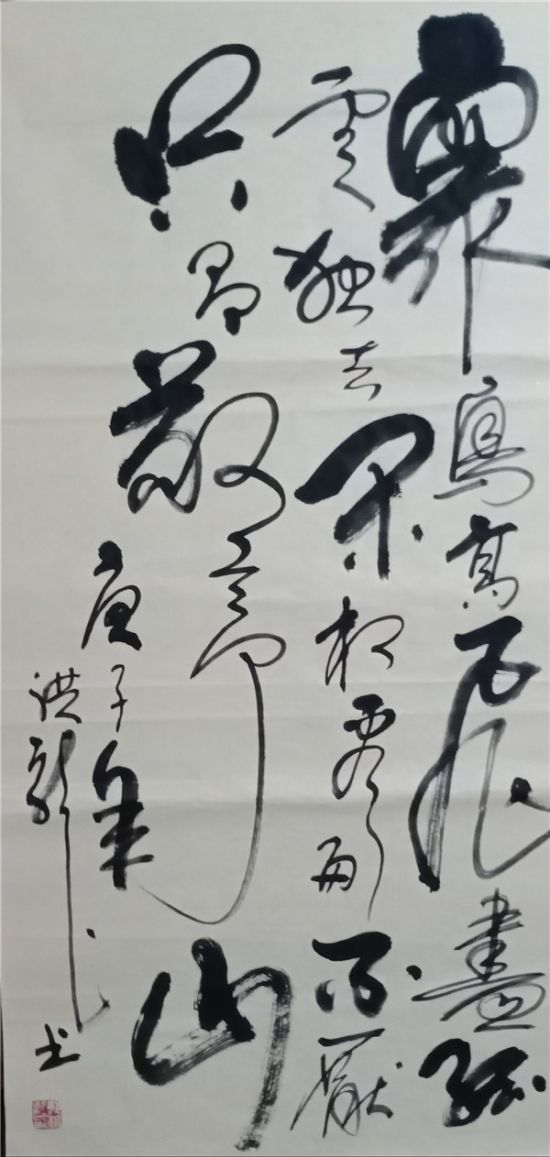 眾鳥高飛盡孤
雲獨去閑相看兩不厭
只有敬亭山
庚子年
洪龍书